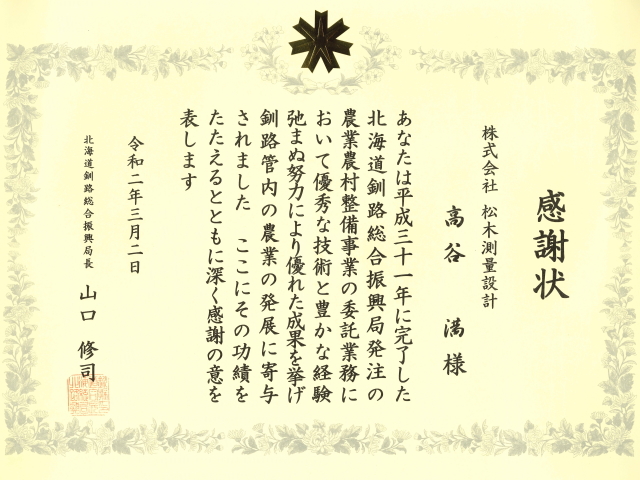 感謝状
株式会社 松木測量設計
高谷 満 様
あなたは平成三十一年に完了した
北海道釧路総合振興局発注の
農業農村整備事業の委託業務に
おいて優秀な技術と豊かな経験
弛まぬ努力により優れた成果を挙げ
釧路管内の農業の発展に寄与
されました ここにその功績を
たたえるとともに深く感謝の意を
表します
令和二年三月二日
北海道釧路総合振興局長 山口 修司